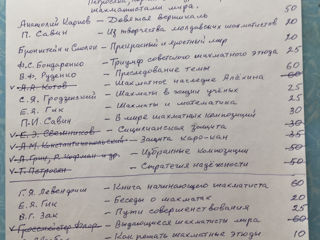 шахматистами мира. 50
Анатолий Карпов – Девятая вертикаль
П. Савин – Из творчества молдавских шахматистов 20
Бронштейн и Смолян – Прекрасный и яростный мир 20
Ф.С. Бондаренко – Триумф советского шахматного этюда 25
В.Ф. Руденко – Преследование темы 60
V А.А. Котов – Шахматное наследие Алёхина 60
С.Я. Гродзенский – Шахматы в жизни учёных 25
Е.Я. Гик – Шахматы и математика 25
П.И. Савин – В мире шахматных композиций 30
V Е.Э. Свешников – Сицилианская защита 30
V А.М. Константинопольский – Защита Каро-Канн 35
V А. Грин, Р. Кофман и др. – Избранные композиции 50
V Т. Петросян – Стратегия надёжности 50
Г.Я. Левенфиш – Книга начинающего шахматиста 60
Е.Я. Гик – Беседы о шахматах 20
В.Г. Зак – Пути совершенствования 25
V Гроссмейстер Флор – Выдающиеся шахматисты мира 60
– Как решать шахматные этюды 10